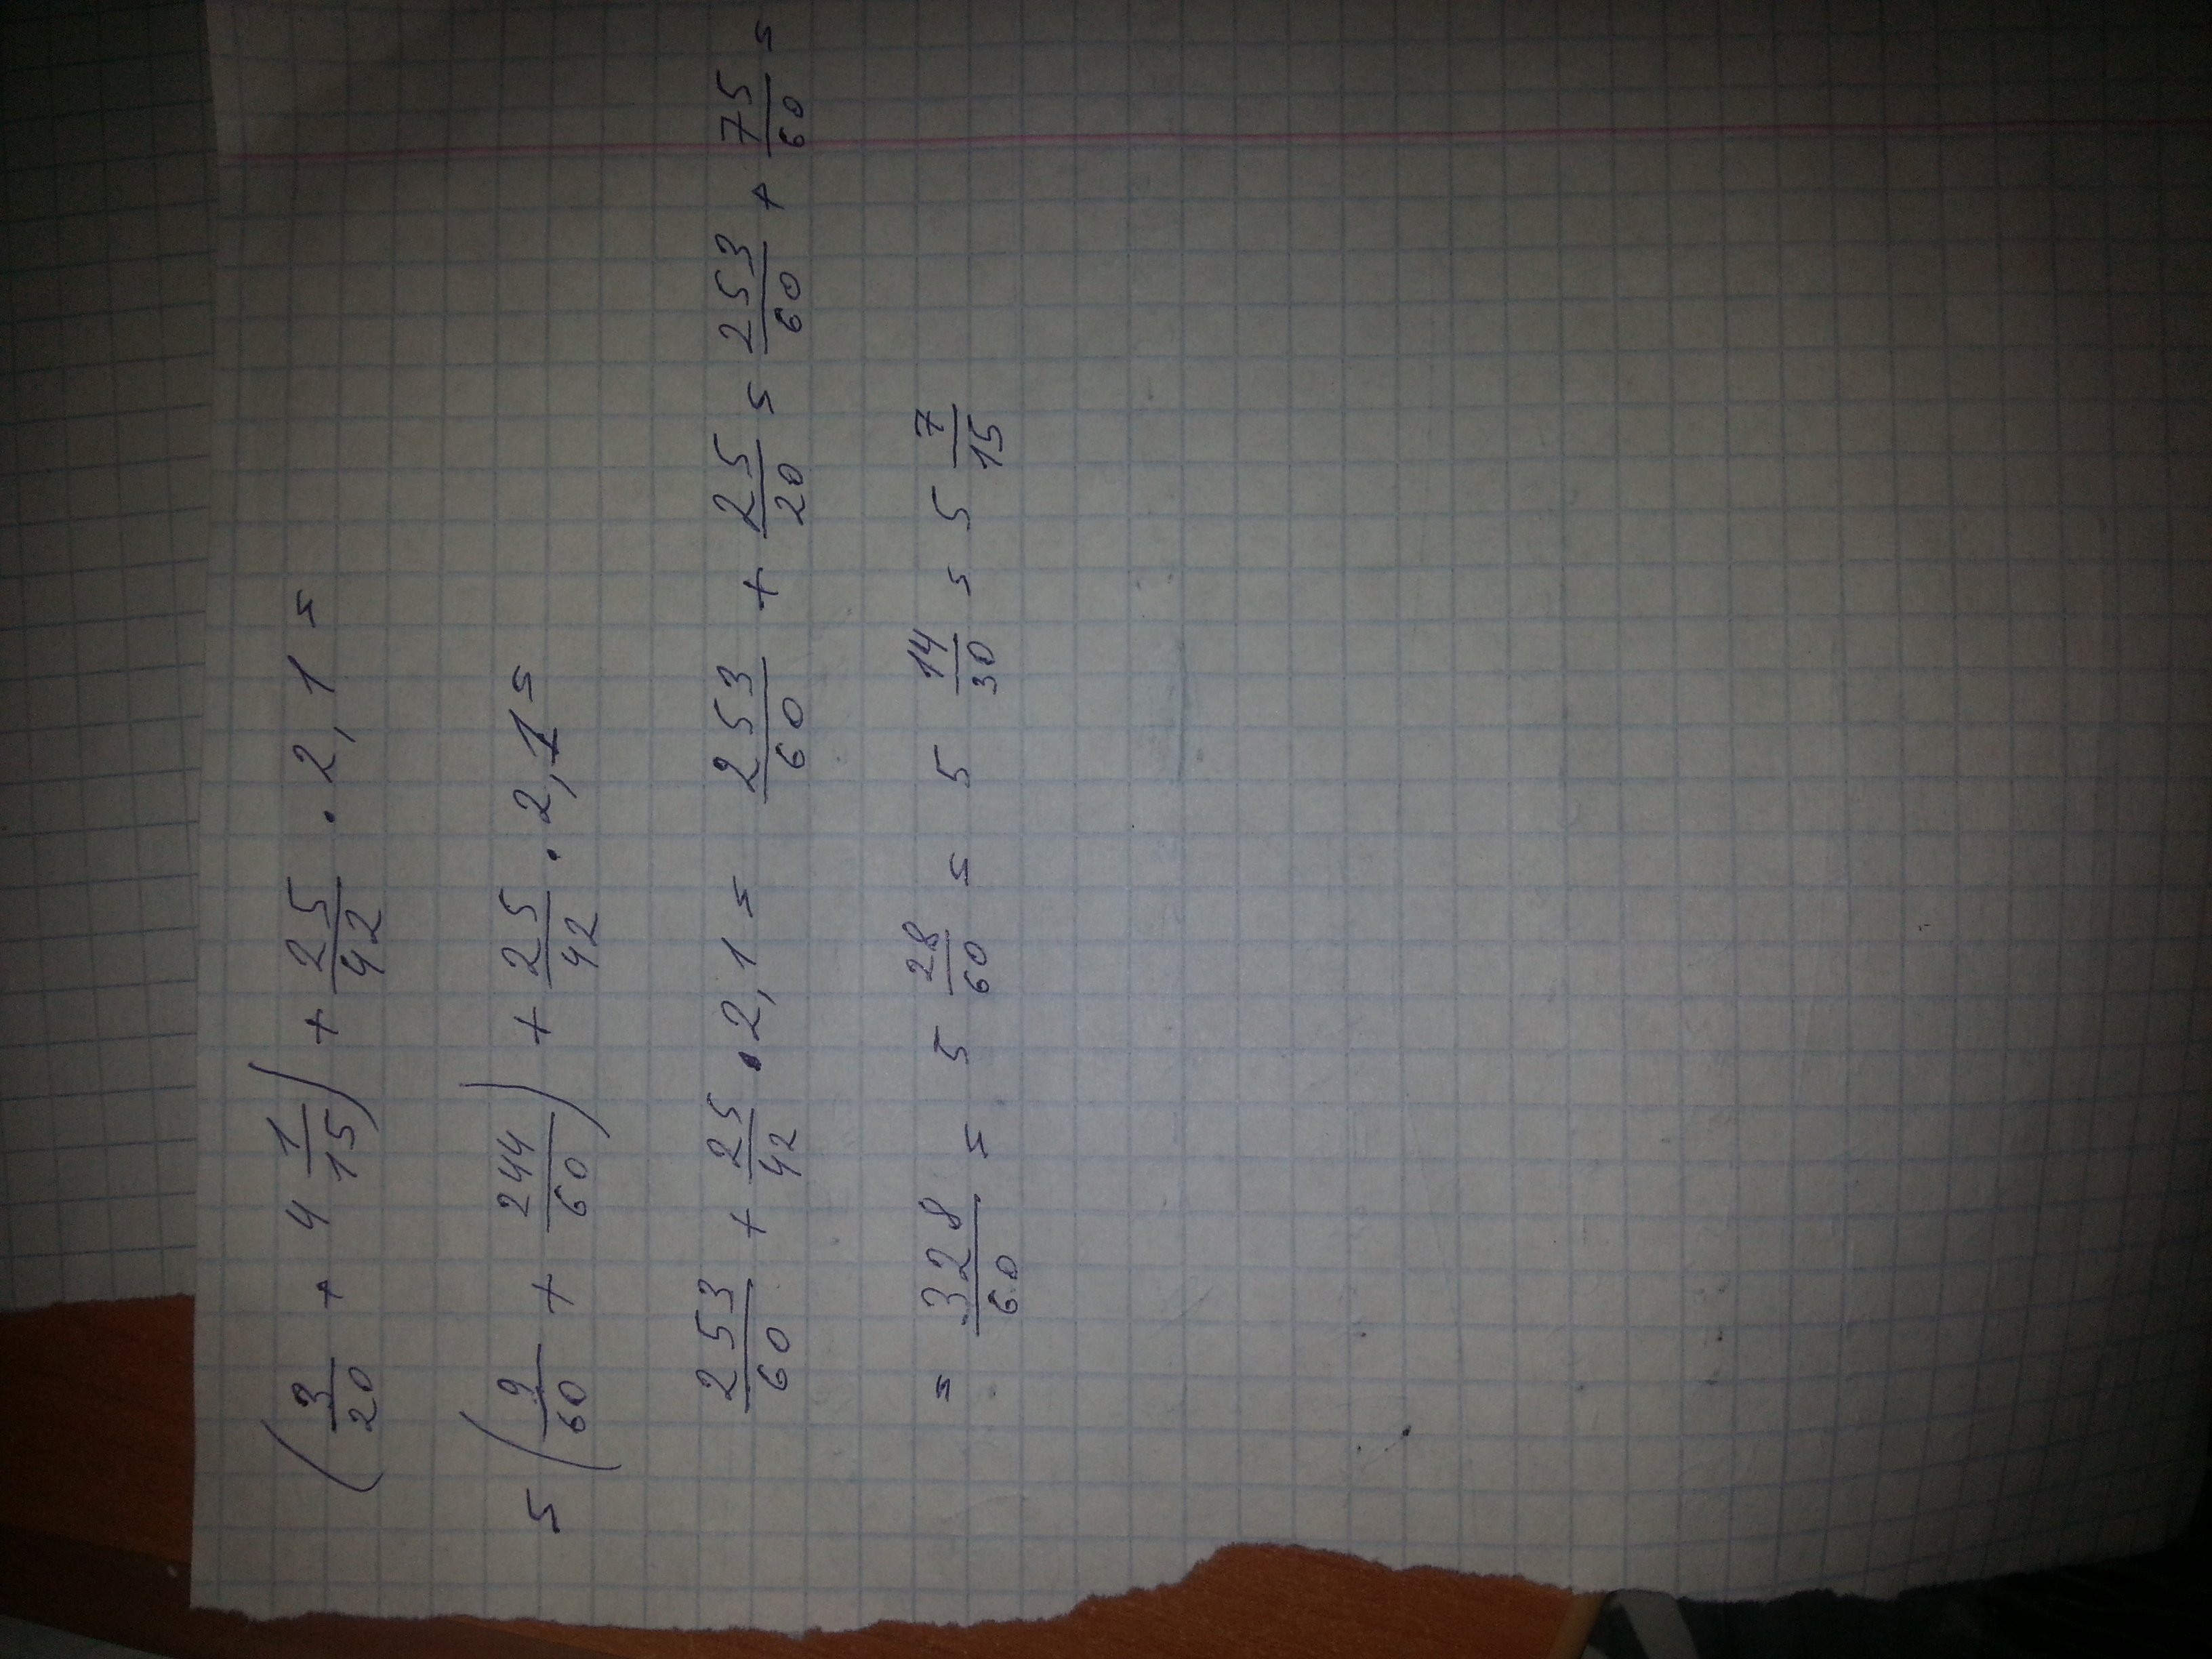 (3/20 + 4 1/15) + 25/42 · 2,1 =
= (9/60 + 244/60) + 25/42 · 2,1 =
253/60 + 25/42 · 2,1 = 253/60 + 25/20 = 253/60 + 75/60 =
= 328/60 = 5 28/60 = 5 14/30 = 5 7/15